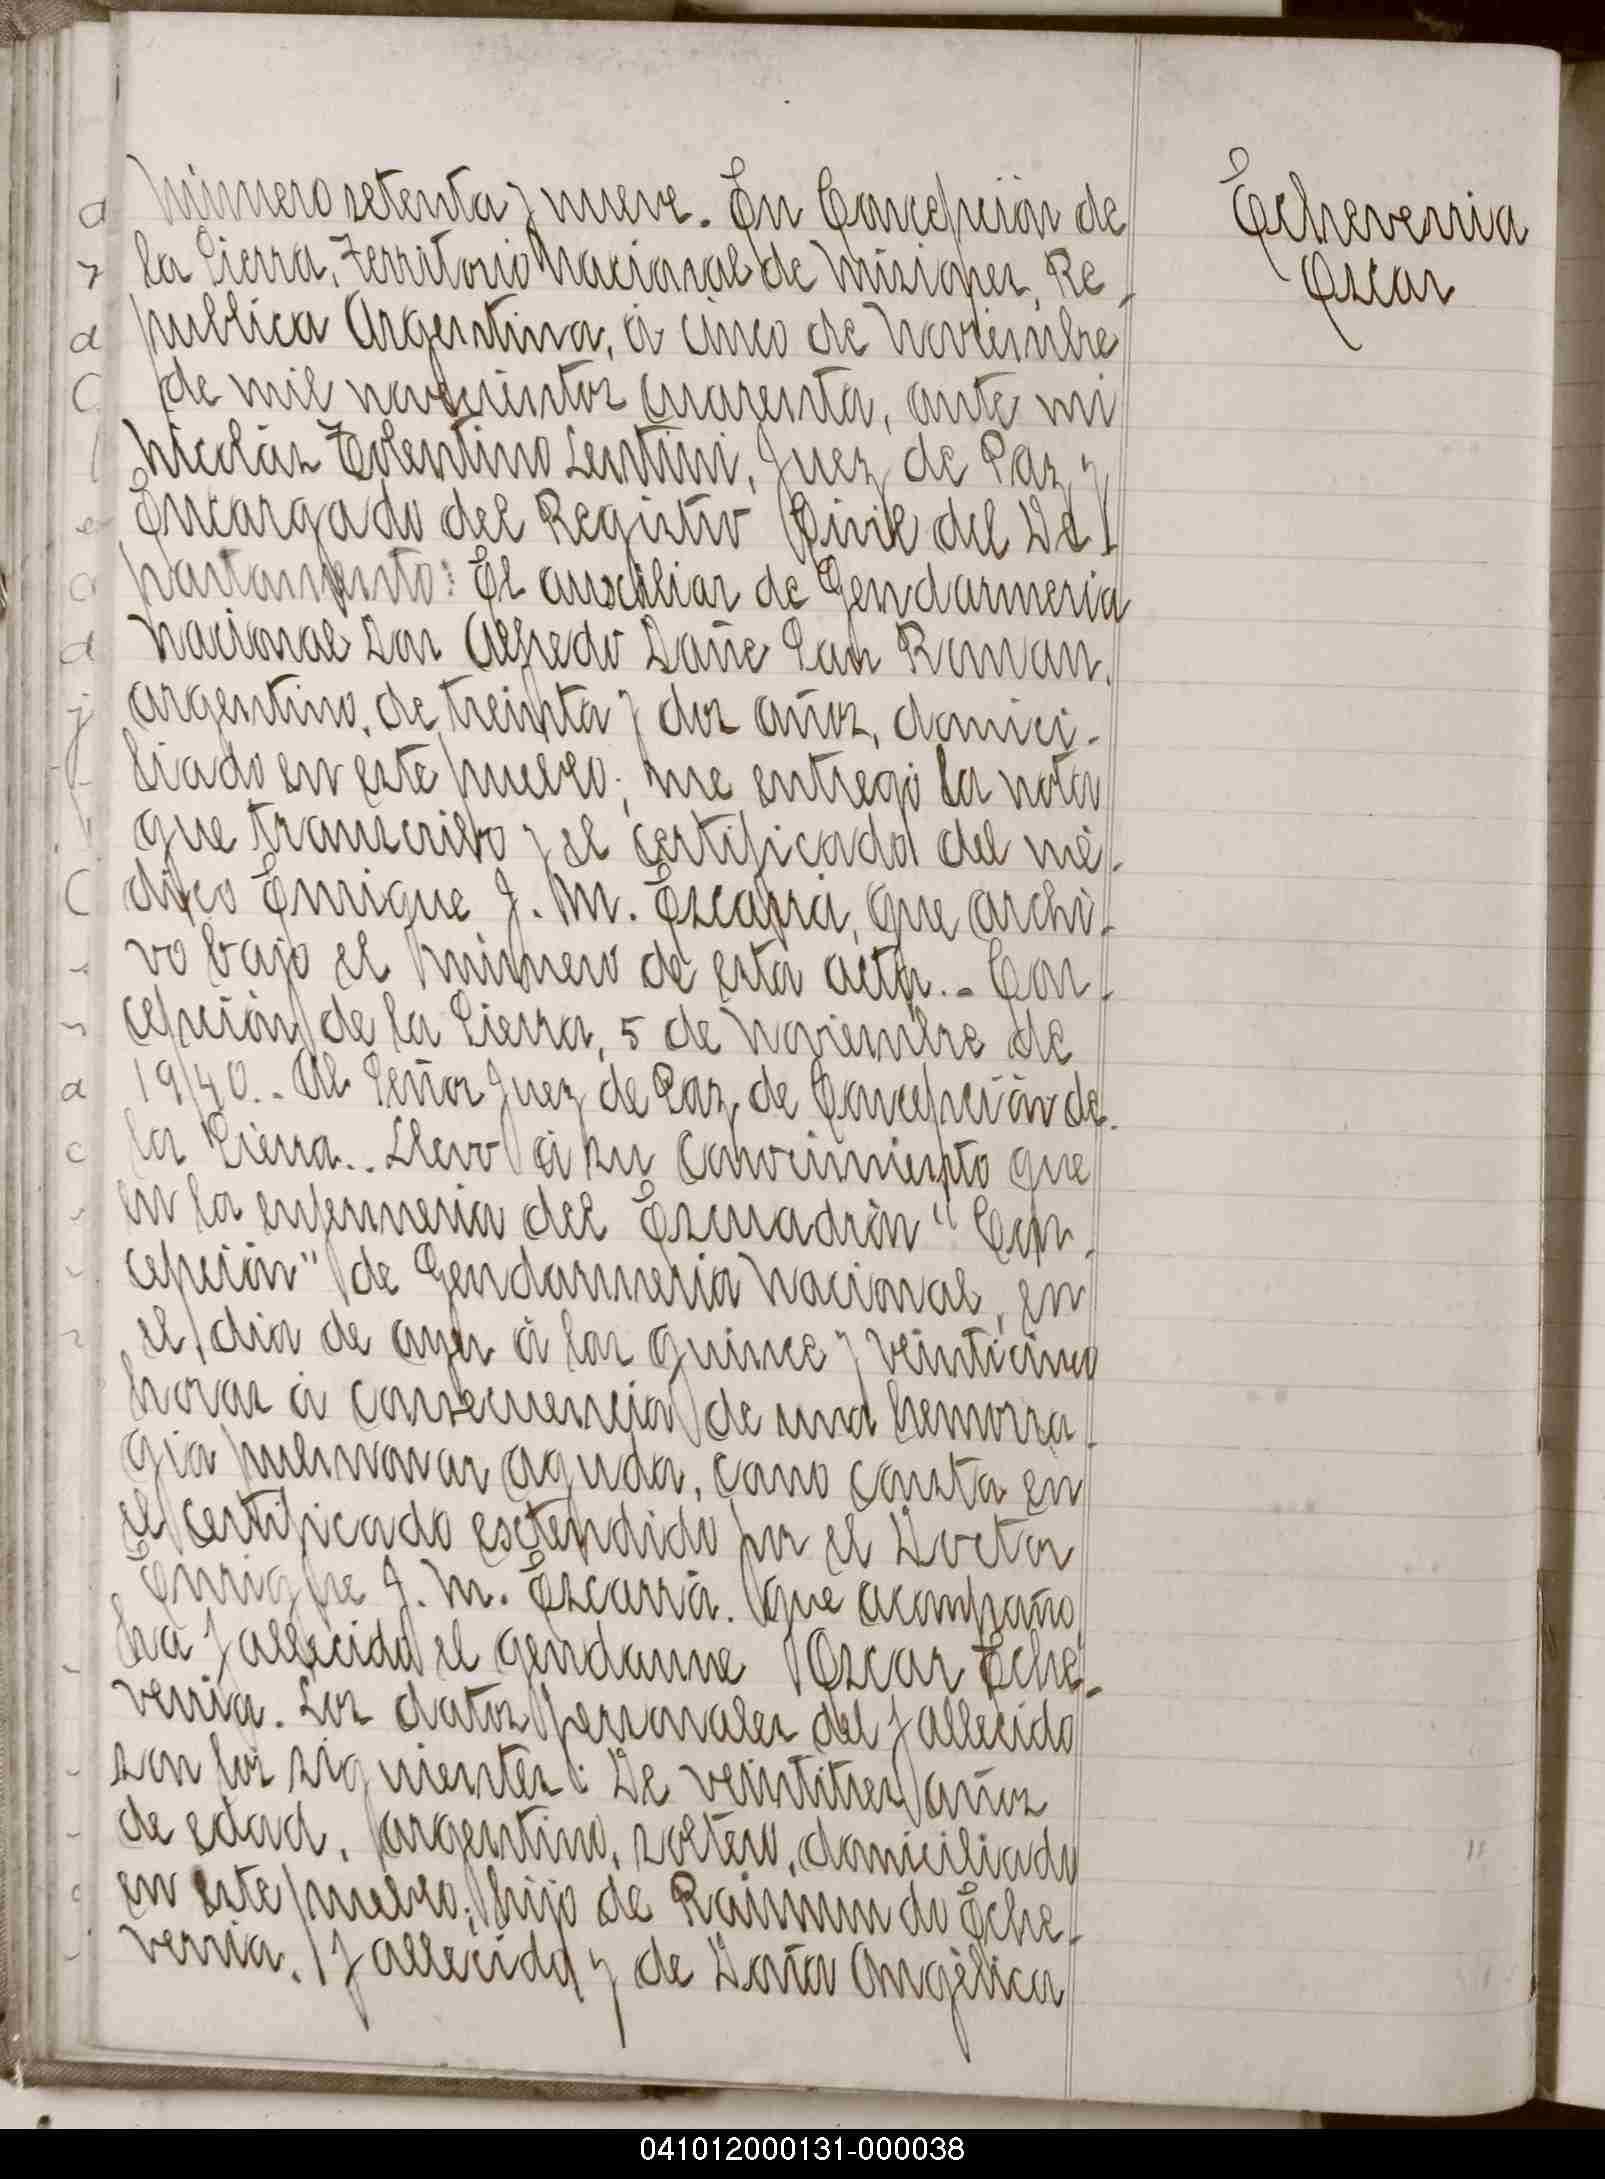 Número setenta y nueve. En Concepción de
la Sierra, Territorio Nacional de Misiones, Re-
publica Argentina, á cinco de Noviembre
de mil novecientos cuarenta, ante mi
Nicolás Tolentino Lentini, Juez de Paz y
Encargado del Registro Civil del De-
partamento: El auxiliar de Gendarmeria
Nacional Don Alfredo Dañe San Roman.
argentino, de treinta y dos años, domici-
liado en este pueblo; me entregó la nota
que transcribo y el certificado del mé-
dico Enrique J. M. Escarrá, que archi-
vo bajo el número de esta acta.- Con-
cepción de la Sierra, 5 de Noviembre de
1940.- Al Señor Juez de Paz de Concepción de
la Sierra.. Llevo á su conocimiento que
en la enfermeria del Escuadrón "Con-
cepción" de Gendarmeria Nacional, en
el dia de ayer á las quince y veinticinco
horas á consecuencia de una hemorra-
gia pulmonar aguda, como consta en
el certificado esctendido por el Doctor
Enrique J. M. Escarrá. que acompaño,
ha fallecido el gendarme Oscar Eche-
verria. Los datos personales del fallecido
son los siguientes: De veintitres años
de edad, argentino, soltero, domiciliado
en este pueblo; hijo de Raimundo Eche-
verria. fallecido y de Doña Angélica
Echeverria
Oscar
041012000131-000038